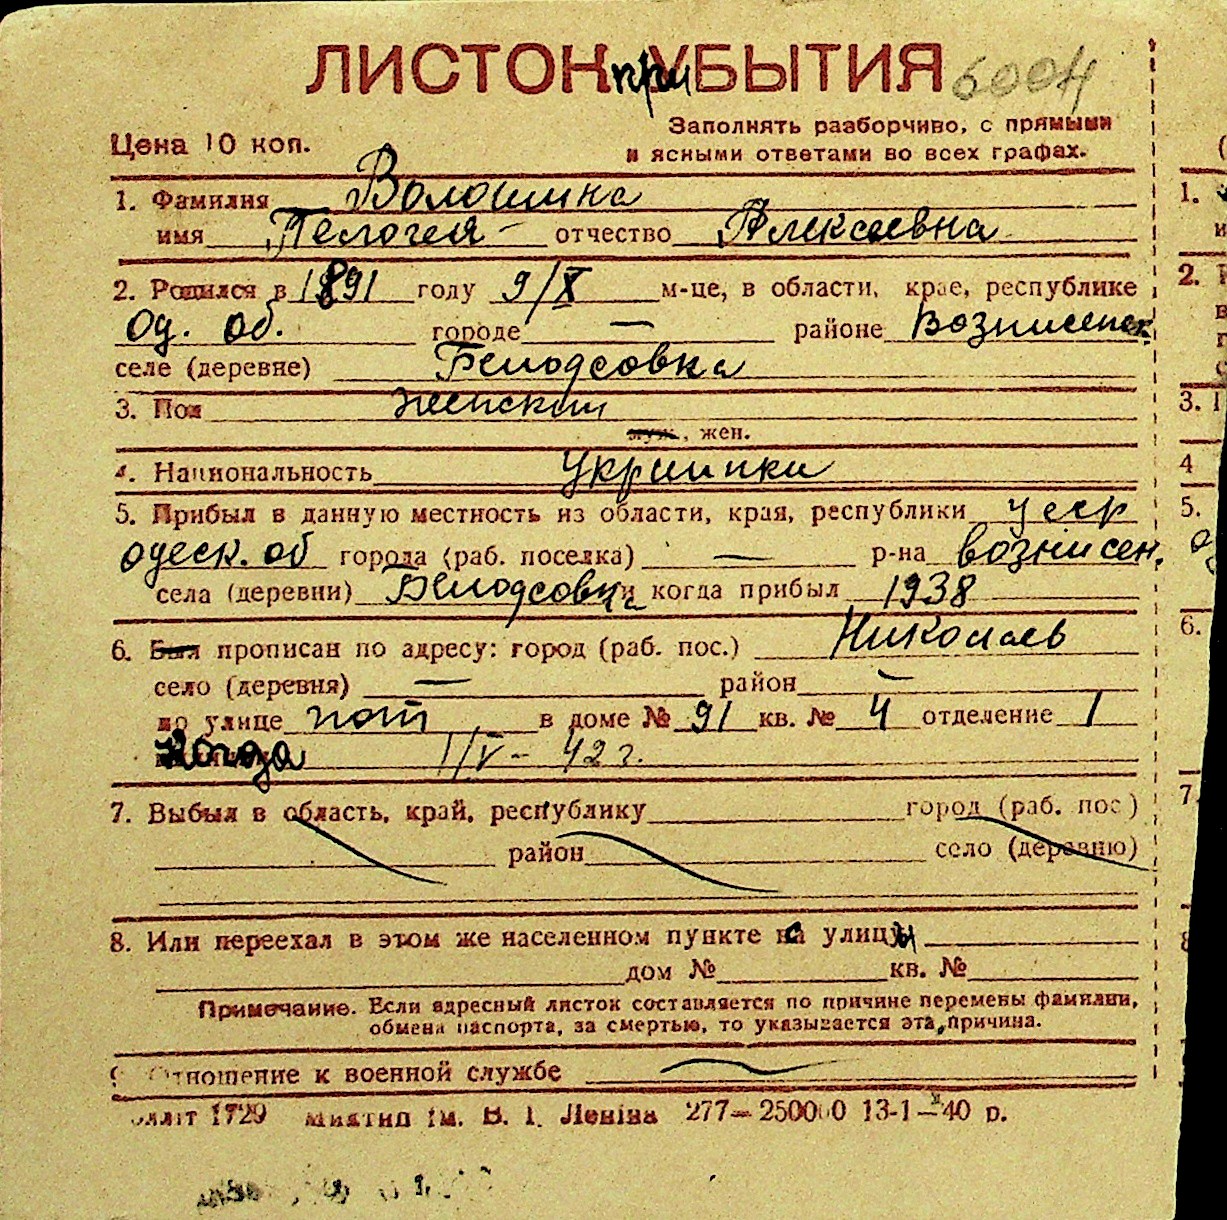 ЛИСТОК при УБЫТИЯ 6004
Цена 10 коп.
Заполнять разборчиво, с прямыми
и ясными ответами во всех графах.
1. Фамилия Волошина
имя Пелогея - отчество Алексеевна
2. Родился в 1891 году 9/X м-це, в области, крае, республике
Од. об. городе — районе Вознисенск.
селе (деревне) Белоусовка
3. Пол женский
муж., жен.
4. Национальность Украинка
5. Прибыл в данную местность из области, края, республики УССР
одеск. об города (раб. поселка) — р-на вознисен.
села (деревни) Белоусовка и когда прибыл 1938
6. Был прописан по адресу: город (раб. пос.) Николаев
село (деревня) — район —
по улице пот в доме № 91 кв. № 4 отделение 1
Когда 1/V - 42 г.
7. Выбыл в область, край, республику город (раб. пос)
район село (деревню)
8. Или переехал в этом же населенном пункте с улицы
дом № кв. №
Примечание. Если адресный листок составляется по причине перемены фамилии,
обмена паспорта, за смертью, то указывается эта причина.
9. Отношение к военной службе
1729 ім. В. І. Леніна 277—250000 13-1—40 р.
1.
2.
3.
4
5.
6.
7.